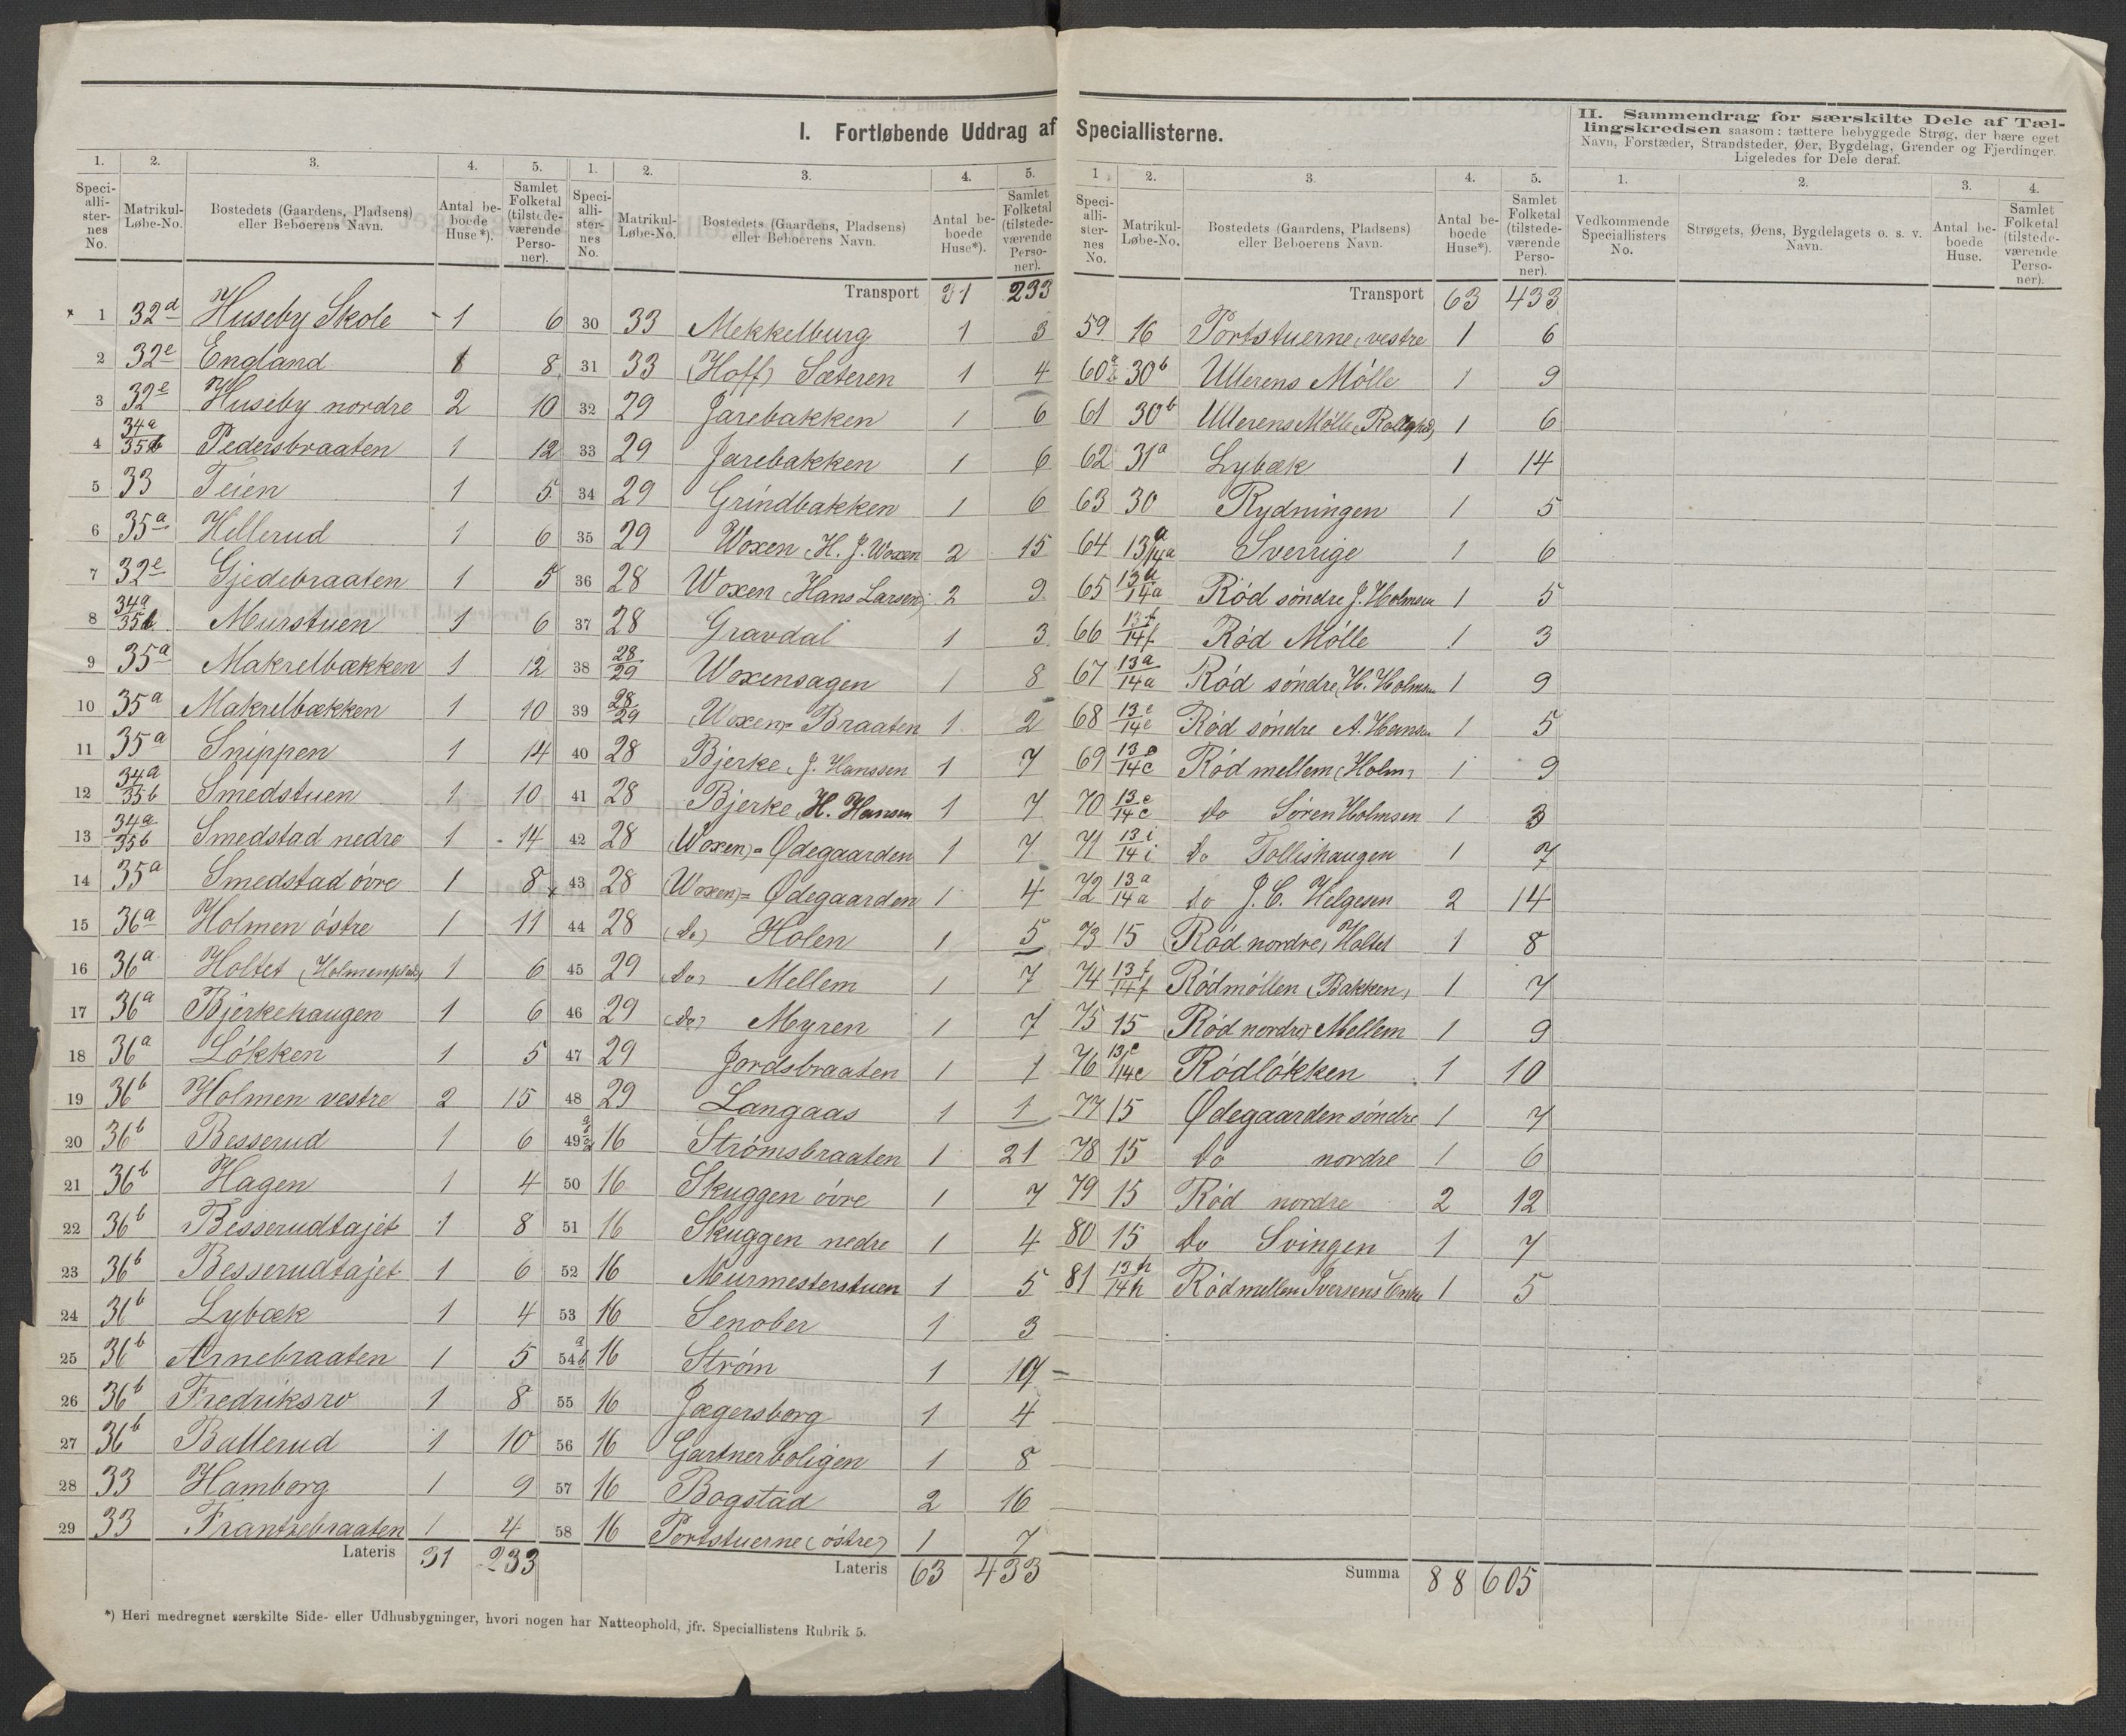 I. Fortløbende Uddrag af Speciallisterne.
II. Sammendrag for særskilte Dele af Tællingskredsen saasom: tættere bebyggede Strøg, der bære eget
Navn, Forstæder, Strandsteder, Øer, Bygdelag, Grender og Fjerdinger.
Ligeledes for Dele deraf.
1. 2. 3. 4. 5.
Speciallisternes No. Matrikul-Løbe-No. Bostedets (Gaardens, Pladsens) eller Beboerens Navn. Antal beboede Huse*). Samlet Folketal (tilstedeværende Personer).
1 32d Huseby Skole 1 6
2 32e England 1 8
3 32e Huseby nordre 2 10
4 34a/35b Pedersbraaten 1 12
5 33 Teien 1 5
6 35a Hellerud 1 6
7 32e Gjedebraaten 1 5
8 34a/35b Murstuen 1 6
9 35a Makrelbækken 1 12
10 35a Makrelbækken 1 10
11 35a Snippen 1 14
12 34a/35b Smedstuen 1 10
13 34a/35b Smedstad nedre 1 14
14 35a Smedstad övre 1 8
15 36a Holmen östre 1 11
16 36a Holtet (Holmenplads) 1 6
17 36a Bjerkehaugen 1 6
18 36a Lökken 1 5
19 36b Holmen vestre 2 15
20 36b Besserud 1 6
21 36b Hagen 1 4
22 36b Besserudtajet 1 8
23 36b Besserudtajet 1 6
24 36b Lybæk 1 4
25 36b Arnebraaten 1 5
26 36b Fredriksro 1 8
27 36b Ballerud 1 10
28 33 Hamborg 1 9
29 33 Frantsebraaten 1 4
Lateris 31 233
*) Heri medregnet særskilte Side- eller Udhusbygninger, hvori nogen har Natteophold, jfr. Speciallistens Rubrik 5.
1. 2. 3. 4. 5.
Speciallisternes No. Matrikul-Løbe-No. Bostedets (Gaardens, Pladsens) eller Beboerens Navn. Antal beboede Huse*). Samlet Folketal (tilstedeværende Personer).
Transport 31 233
30 33 Mekkelburg 1 3
31 33 (Hoff) Sæteren 1 4
32 29 Jarebakken 1 6
33 29 Jarebakken 1 6
34 29 Grindbakken 1 6
35 29 Woxen (H. J. Woxen 2 15
36 28 Woxen (Hans Larsen) 2 9
37 28 Gravdal 1 3
38 28/29 Woxensagen 1 8
39 28/29 (Woxen)= Braaten 1 2
40 28 Bjerke, J. Hanssen 1 7
41 28 Bjerke, H. Hansen 1 7
42 28 (Woxen)= Ødegaarden 1 7
43 28 (Woxen)= Ødegaarden 1 4
44 28 (Do) Holen 1 5
45 29 (Do) Mellem 1 7
46 29 (Do) Myren 1 7
47 29 Jordsbraaten 1 1
48 29 Langaas 1 1
49 16 Strömsbraaten 1 21
50 16 Skuggen övre 1 7
51 16 Skuggen nedre 1 4
52 16 Murmesterstuen 1 5
53 16 Senober 1 3
54 a b 16 Ström 1 19
55 16 Jægersborg 1 4
56 16 Gartnerboligen 1 8
57 16 Bogstad 2 16
58 16 Portstuerne (östre) 1 7
Lateris 63 433
1 2. 3. 4. 5.
Speciallisternes No. Matrikul-Løbe-No. Bostedets (Gaardens, Pladsens) eller Beboerens Navn. Antal beboede Huse*). Samlet Folketal (tilstedeværende Personer).
Transport 63 433
59 16 Portstuerne, vestre 1 6
60 30b Ullerens Mölle 1 9
61 30b Ullerens Mölle 1 6
62 31a Lybæk 1 14
63 30 Rydningen 1 5
64 13a/14a Sverrige 1 6
65 13a/14a Röd söndre J. Holmsen 1 5
66 13f/14f Röd Mölle 1 3
67 13a/14a Röd söndre, H. Holmsen 1 9
68 13e/14e Röd söndre A. Hansen 1 5
69 13e/14c Röd mellem (Holm) 1 9
70 13e/14c Do Sören Holmsen 1 3
71 13i/14i Do Tollishaugen 1 7
72 13a/14a Do J. C. Helgesen 2 14
73 15 Röd nordre, Holtet 1 8
74 13f/14f Rödmöllen (Bakken) 1 7
75 15 Röd nordre, Mellem 1 9
76 13c/14c Rödlökken 1 10
77 15 Ødegaarden söndre 1 7
78 15 Do nordre 1 6
79 15 Röd nordre 2 12
80 15 Do Svingen 1 7
81 13h/14h Röd mellem Iversens Enke 1 5
Summa 88 605
1. 2. 3. 4.
Vedkommende Speciallisters No. Strøgets, Øens, Bygdelagets o. s. v. Navn. Antal beboede Huse. Samlet Folketal (tilstedeværende Personer).